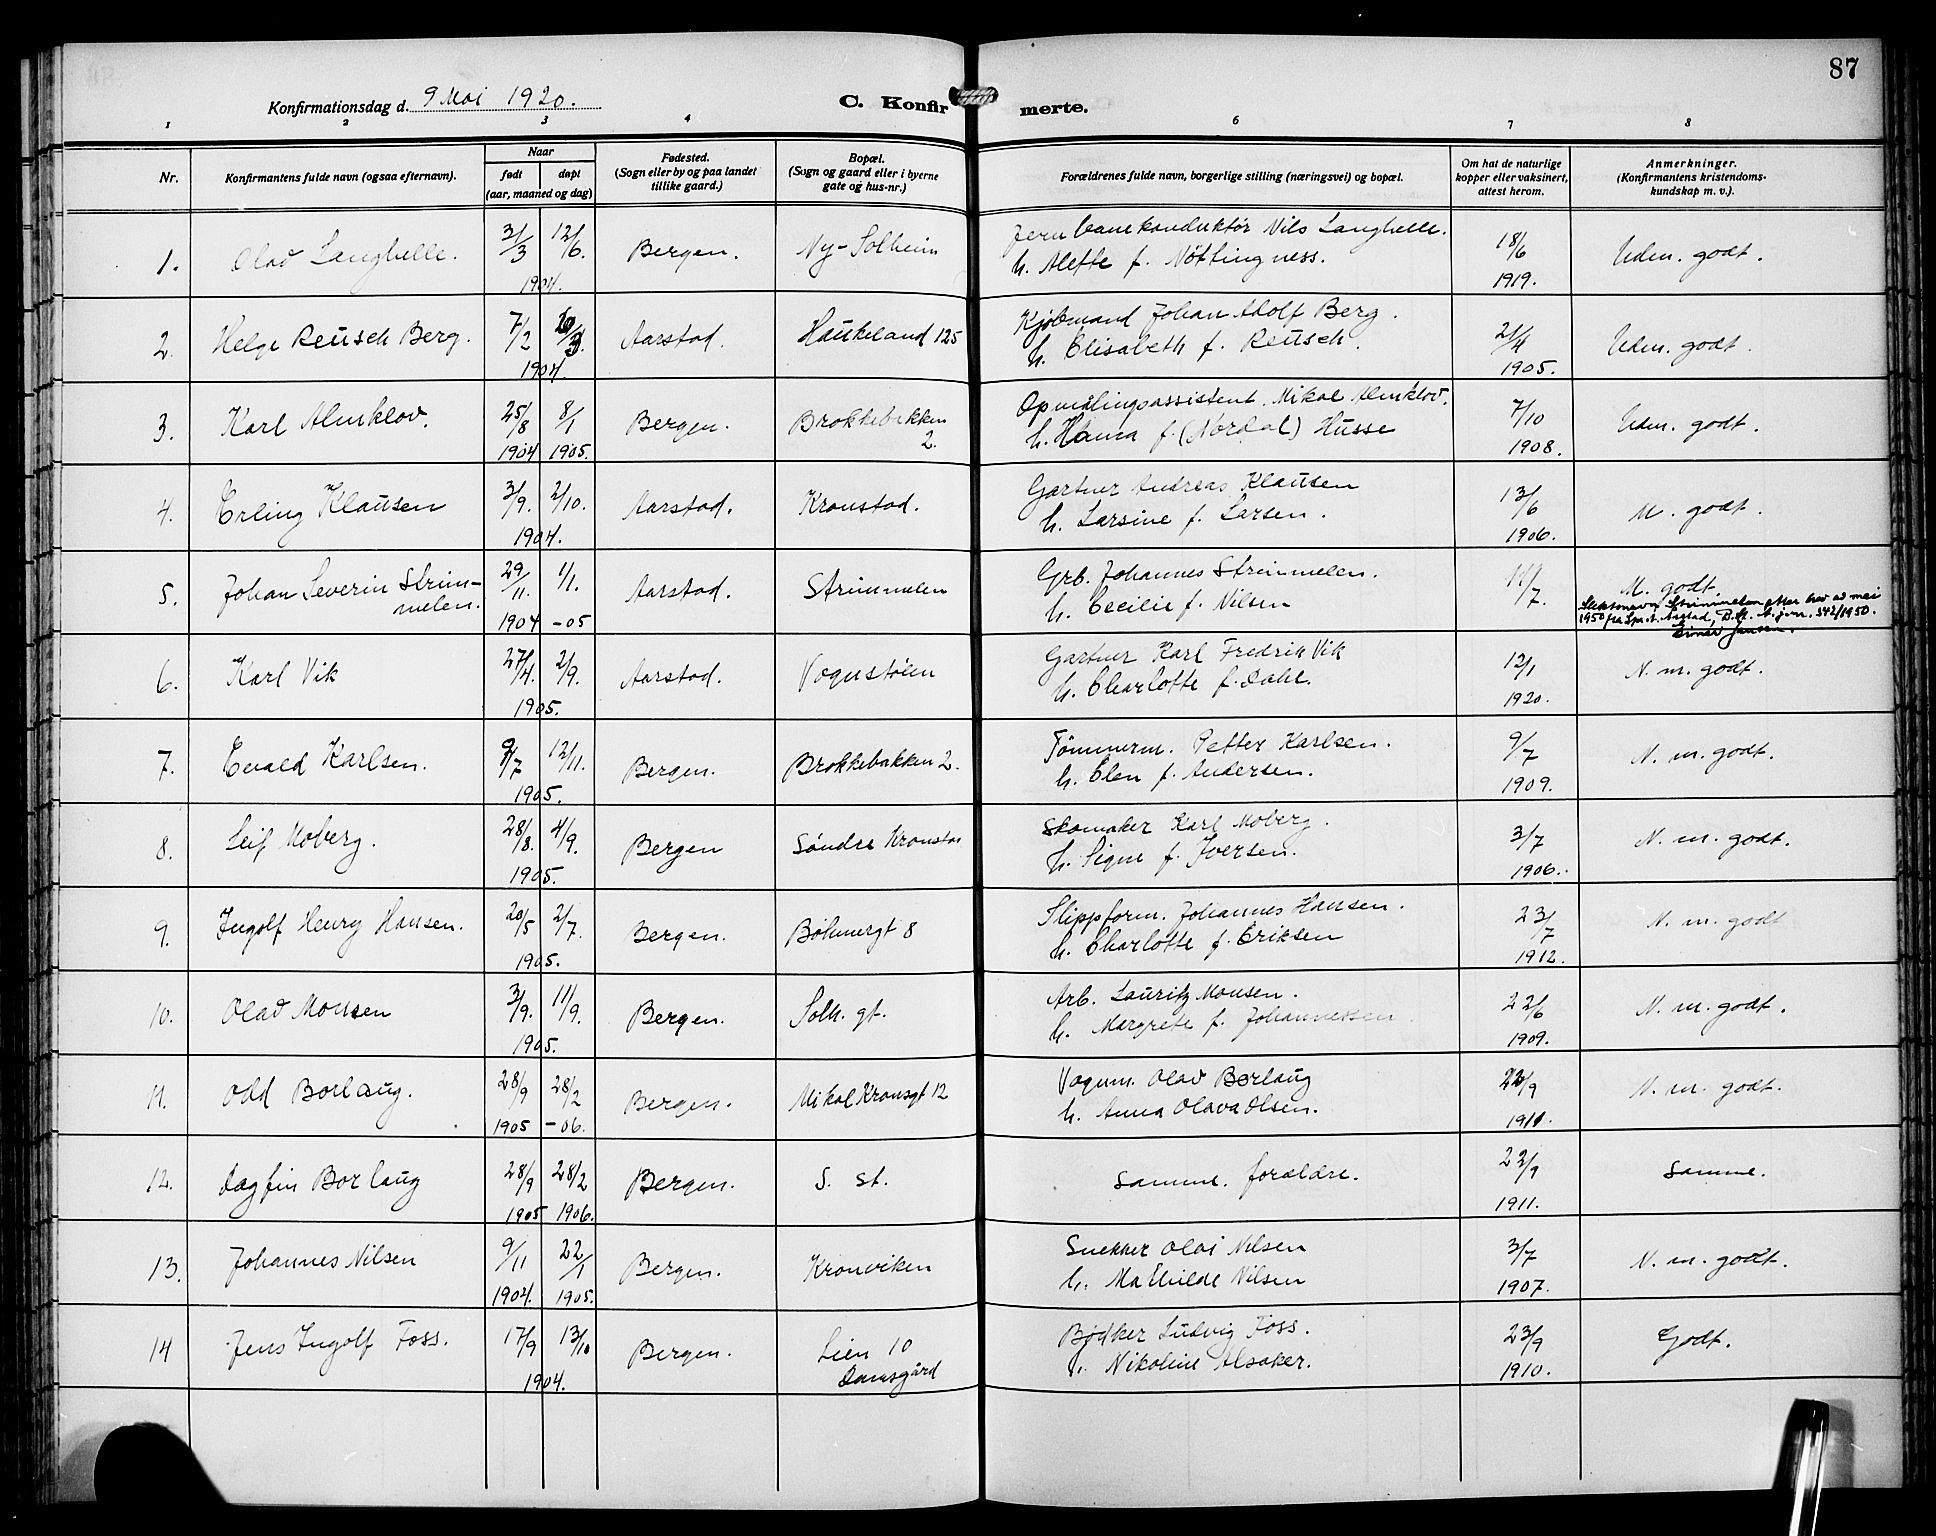 87
Konfirmationsdag d. 9 Mai 1920.
C. Konfirmerte.
1 2 3 4 6 7 8
Nr.
Konfirmantens fulde navn (ogsaa efternavn).
Naar
født døpt
(aar, maaned og dag)
Fødested.
(Sogn eller by og paa landet
tillike gaard.)
Bopæl.
(Sogn og gaard eller i byerne
gate og hus-nr.)
Forældrenes fulde navn, borgerlige stilling (næringsvei) og bopæl.
Om hat de naturlige
kopper eller vaksinert,
attest herom.
Anmerkninger.
(Konfirmantens kristendoms-
kundskap m. v.).
1. Olav Langhelle. 31/3 12/6. 1904. Bergen. Ny-Solheim
Jernbanekonduktør Nils Langhelle.
h. Alette f. Nøttingness. 18/6 1919. Udm. godt.
2. Helge Reusch Berg. 7/2 1904. Aarstad. Haukeland 125
Kjøbmand Johan Adolf Berg.
h. Elisabeth f. Reusch. 21/4 1905. Udm. godt.
3. Karl Almklov. 25/8 1904 8/1 1905. Bergen. Brokkebakken 2.
Opmålingsassistent Mikal Almklov.
h. Hanna f. (Nordal) Husse 7/10 1908. Udm. godt.
4. Erling Klausen 3/9. 2/10. 1904. Aarstad. Kronstad.
Gartner Andreas Klausen
h. Larsine f. Larsen. 13/6 1906. M. godt.
5. Johan Severin Strim-
melen. 29/11. 1904 1/1. -05 Aarstad. Strimmelen
Grb. Johannes Strimmelen.
h. Cecilie f. Nilsen 11/7. M. godt.
Slektsnavn Strimmelen etter brev av mai
1950 fra Spr. i Årstad, B.st. A. jnr. 342/1950.
Einar Jansen.
6. Karl Vik 27/4. 2/9. 1905. Aarstad. Vognstølen
Gartner Karl Fredrik Vik
h. Charlotte f. Dahl. 12/1 1920. N. m. godt.
7. Evald Karlsen. 9/7 12/11. 1905. Bergen. Brokkebakken 2.
Tømmerm. Petter Karlsen.
h. Elen f. Andersen. 9/7 1909. N. m. godt.
8. Leif Moberg. 28/8. 4/9. 1905. Bergen Søndre Kronstad
Skomaker Karl Moberg.
h. Signe f. Iversen. 3/7 1906. N. m. godt.
9. Ingolf Henry Hansen. 20/5 2/7. 1905. Bergen. Bøhmergt 8
Slippform. Johannes Hansen.
h. Charlotte f. Eriksen 23/7 1912. N. m. godt
10. Olav Monsen 3/9. 11/9. 1905. Bergen. Solh. gt.
Arb. Lauritz Monsen.
h. Margrete f. Johannessen 22/6 1909. N. m. godt.
11. Odd Borlaug. 28/9 1905 28/2 -06. Bergen. Mikal Kronsgt 12
Vognm. Olav Borlaug
h. Anna Olava Olsen. 22/9 1911. N. m. godt.
12. Dagfin Borlaug 28/9 1905 28/2 1906. Bergen. S. st.
Samme forældre. 22/9 1911. Samme.
13. Johannes Nilsen 9/11 1904. 22/1 1905. Bergen. Kronviken
Snekker Olai Nilsen
h. Mathilde Nilsen 3/7 1907. N. m. godt.
14 Jens Ingolf Foss. 17/9 13/10 1904. Bergen. Lien 10
Damsgård
Bødker Ludvig Foss.
h. Nikoline Alsaker. 23/9 1910. Godt.